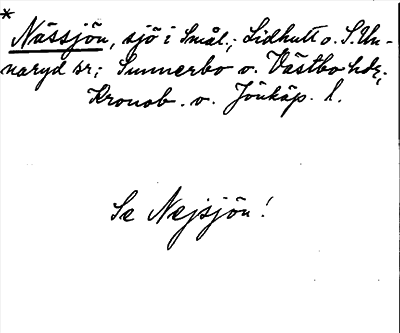 * Nässjön, sjö i Smål.; Lidhult o. S. Un-
naryd sr; Sunnerbo o. Västbo hdr,
Kronob. o. Jönköp. l.
Se Nejsjön!